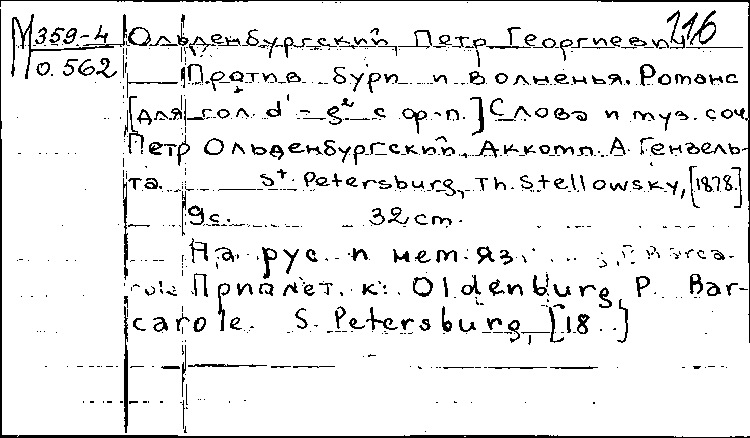 216
М 359-4 Ольденбургский, Петр Георгиевич
О.562 Против бури и волненья. Романс
[для гол. d¹ - g² с ф-п.] Слова и муз. соч.
Петр Ольденбургский. Аккомп. А. Гензель-
та. St. Petersburg, Th. Stellowsky, [1878.]
9 с. 32 cm.
На рус. и нем. яз. Barca-
role Приплет. к: Oldenburg, P. Bar-
carole. S. Petersburg, [18..]